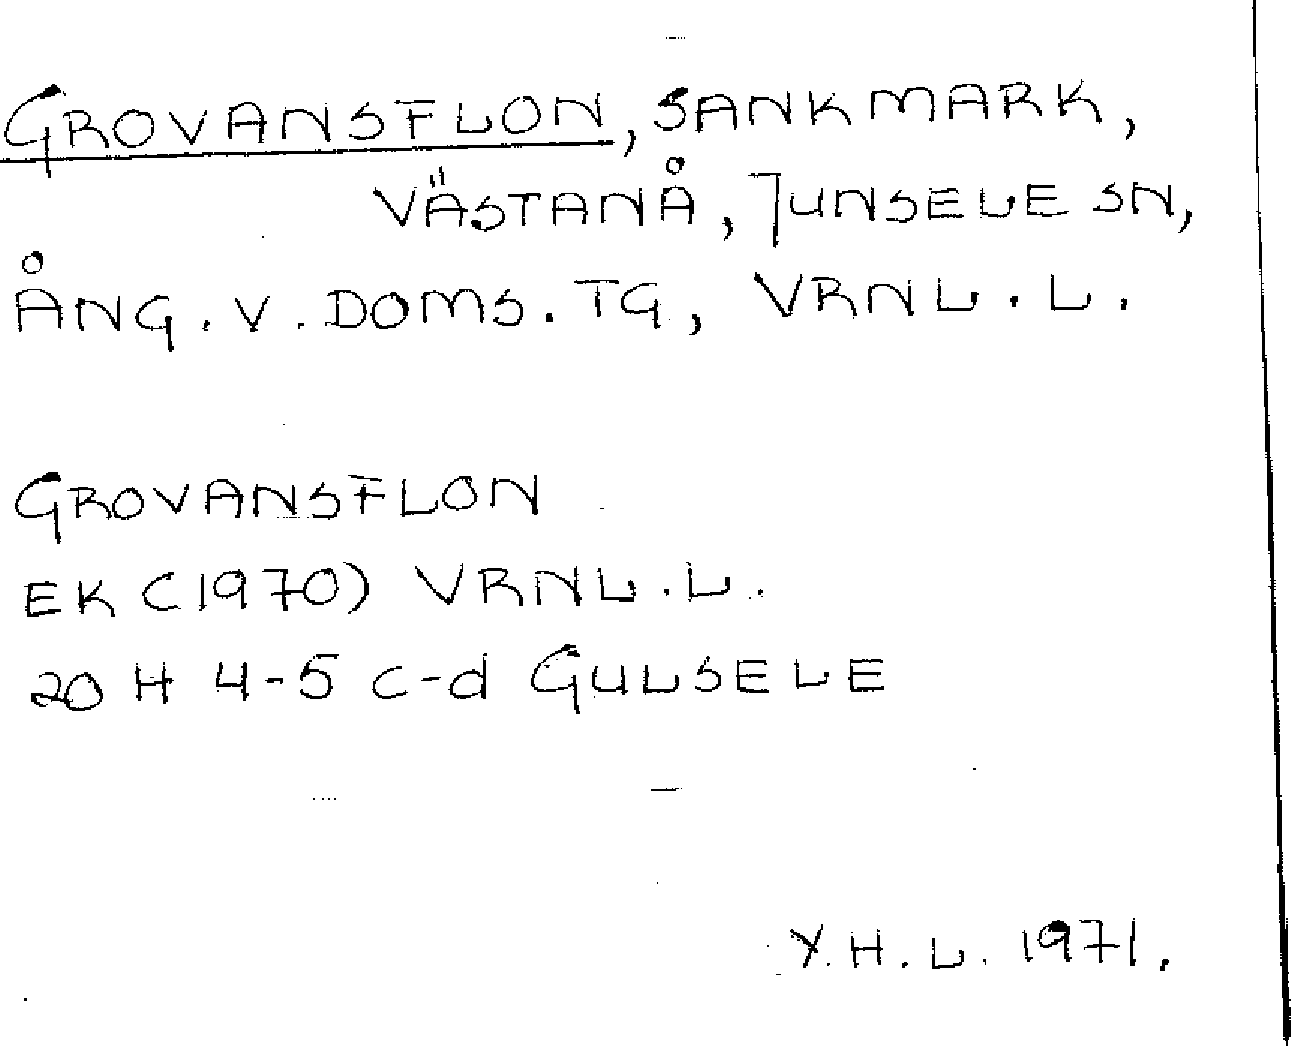 GROVANSFLON, SANKMARK,
VÄSTANÅ, JUNSELE SN,
ÅNG. V. DOMS. TG, VRNL. L.
GROVANSFLON
EK (1970) VRNL. L.
20 H 4-5 c-d GULSELE
Y. H. L. 1971.